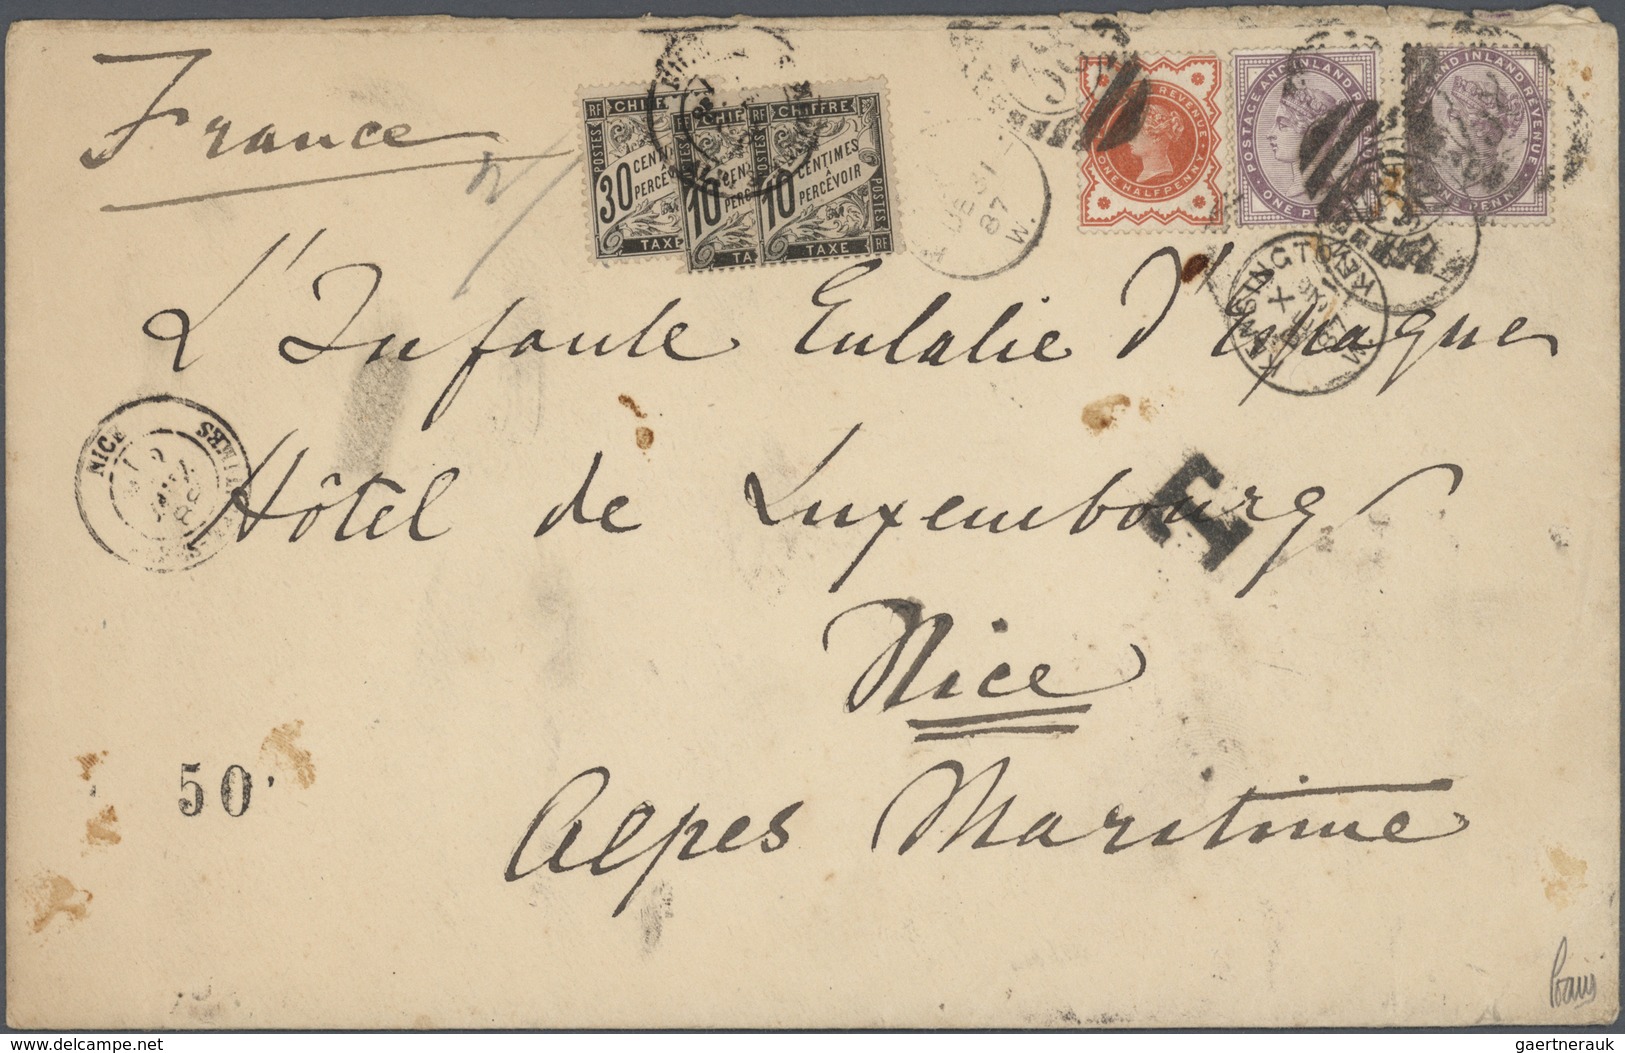 France
RF CHIFFRE
POSTES
30 CENTI
PERCEVOIR
TAXE
RF CHIF
POSTES
10 CEN
PERC
TA
RF CHIFFRE
POSTES
10 CENTIMES
A
PERCEVOIR
POSTES
TAXE RF
DE 31
87
W.
REVENUE
ONE HALFPENNY
POSTAGE AND INLAND REVENUE
ONE PENNY
AND INLAND REVENUE
ONE PENNY
KENSINGTON
X
87
W
L'Infante Eulalie d'Espagne
NICE
Hôtel de Luxembourg
T
Nice
50
Alpes Maritime
gaertnerauk